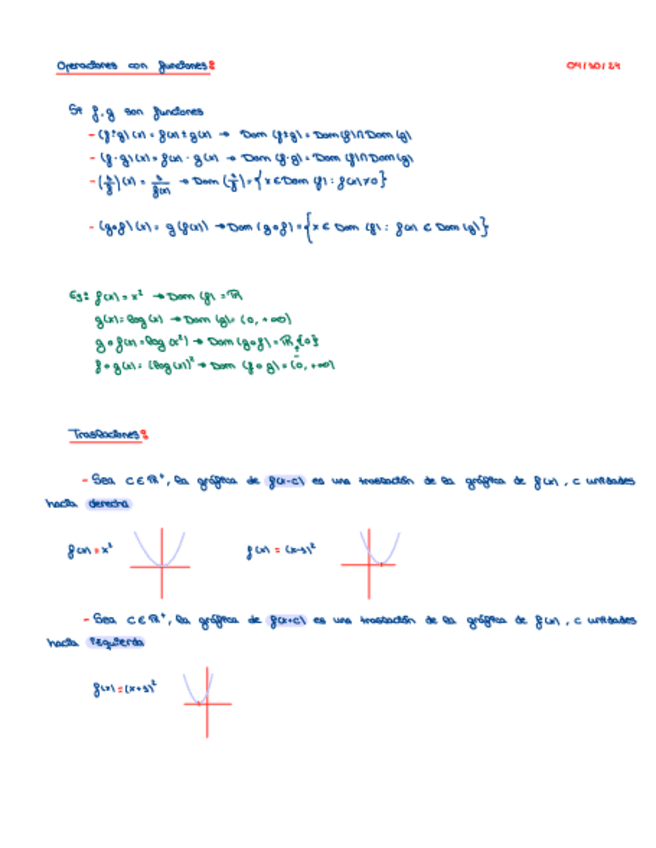 Operaciones con funciones:
04/10/24
Si f, g son funciones
- (f±g)(x) = f(x) ± g(x) → Dom (f±g) = Dom(f) ∩ Dom(g)
- (f·g)(x) = f(x) · g(x) → Dom (f·g) = Dom (f) ∩ Dom(g)
- (1/f)(x) = 1/f(x) → Dom (1/f) = {x ∈ Dom (f) : f(x) ≠ 0}
- (g∘f)(x) = g(f(x)) → Dom (g∘f) = {x ∈ Dom (f) : f(x) ∈ Dom (g)}
Ej: f(x) = x² → Dom (f) = ℝ
g(x) = log(x) → Dom (g) = (0, +∞)
g∘f(x) = log(x²) → Dom (g∘f) = ℝ \ {0}
f∘g(x) = (log(x))² → Dom (f∘g) = (0, +∞)
Traslaciones:
- Sea c ∈ ℝ⁺, la gráfica de f(x-c) es una traslación de la gráfica de f(x), c unidades
hacia derecha
f(x) = x² f(x) = (x-3)²
- Sea c ∈ ℝ⁺, la gráfica de f(x+c) es una traslación de la gráfica de f(x), c unidades
hacia izquierda
f(x) = (x+3)²